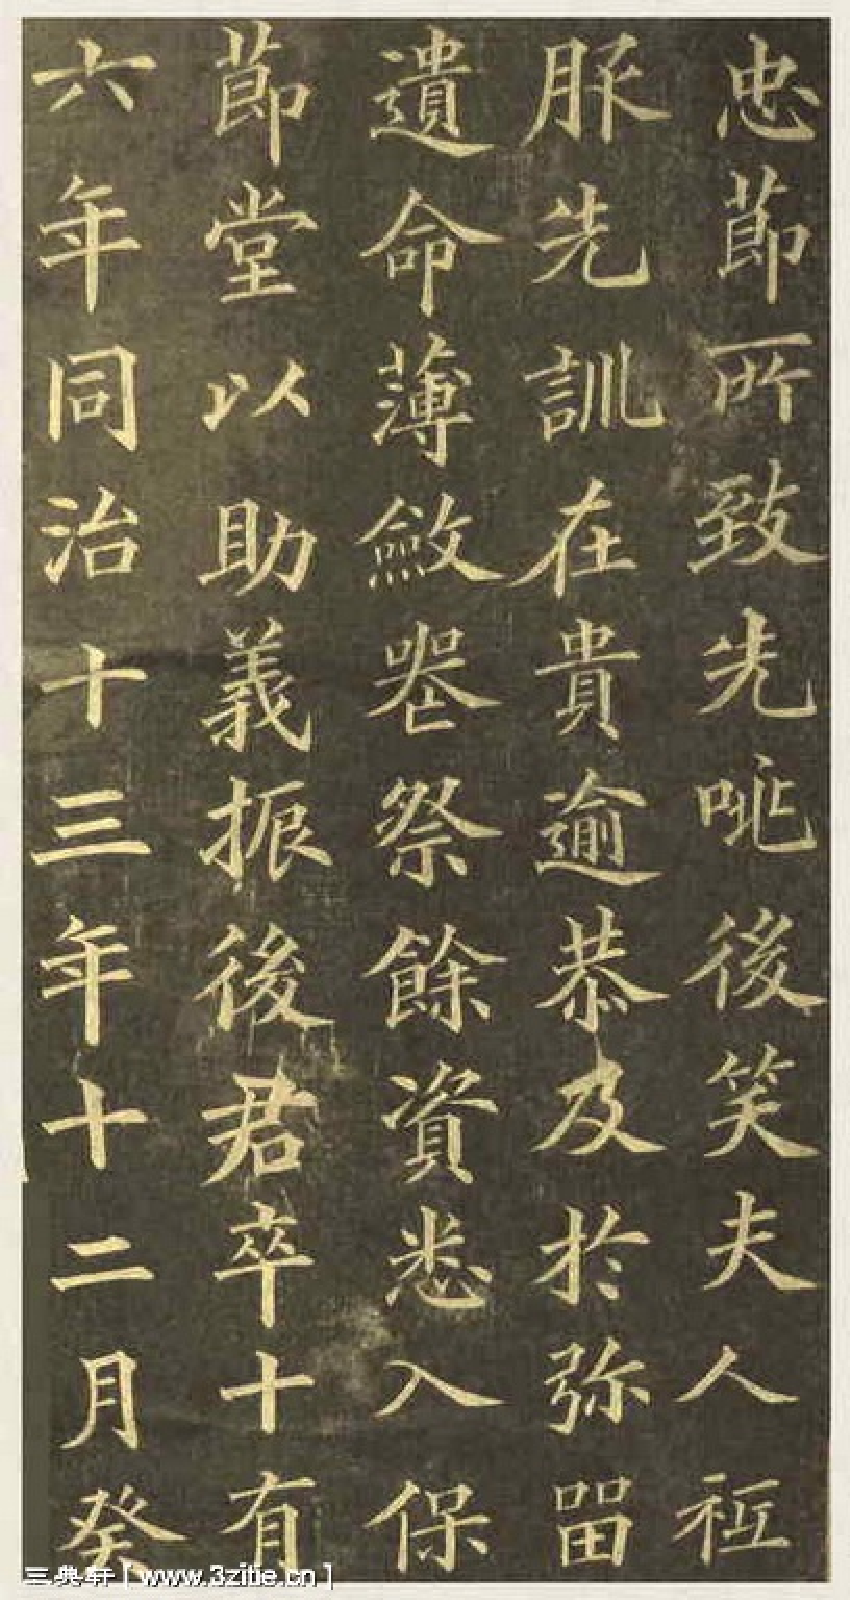 忠節所致先咷後笑夫人祗
脤先訓在貴逾恭及於弥留
遺命薄斂喪祭餘資悉入保
節堂以助義振後君卒十有
六年同治十三年十二月癸
三典轩［www.3zitie.cn］